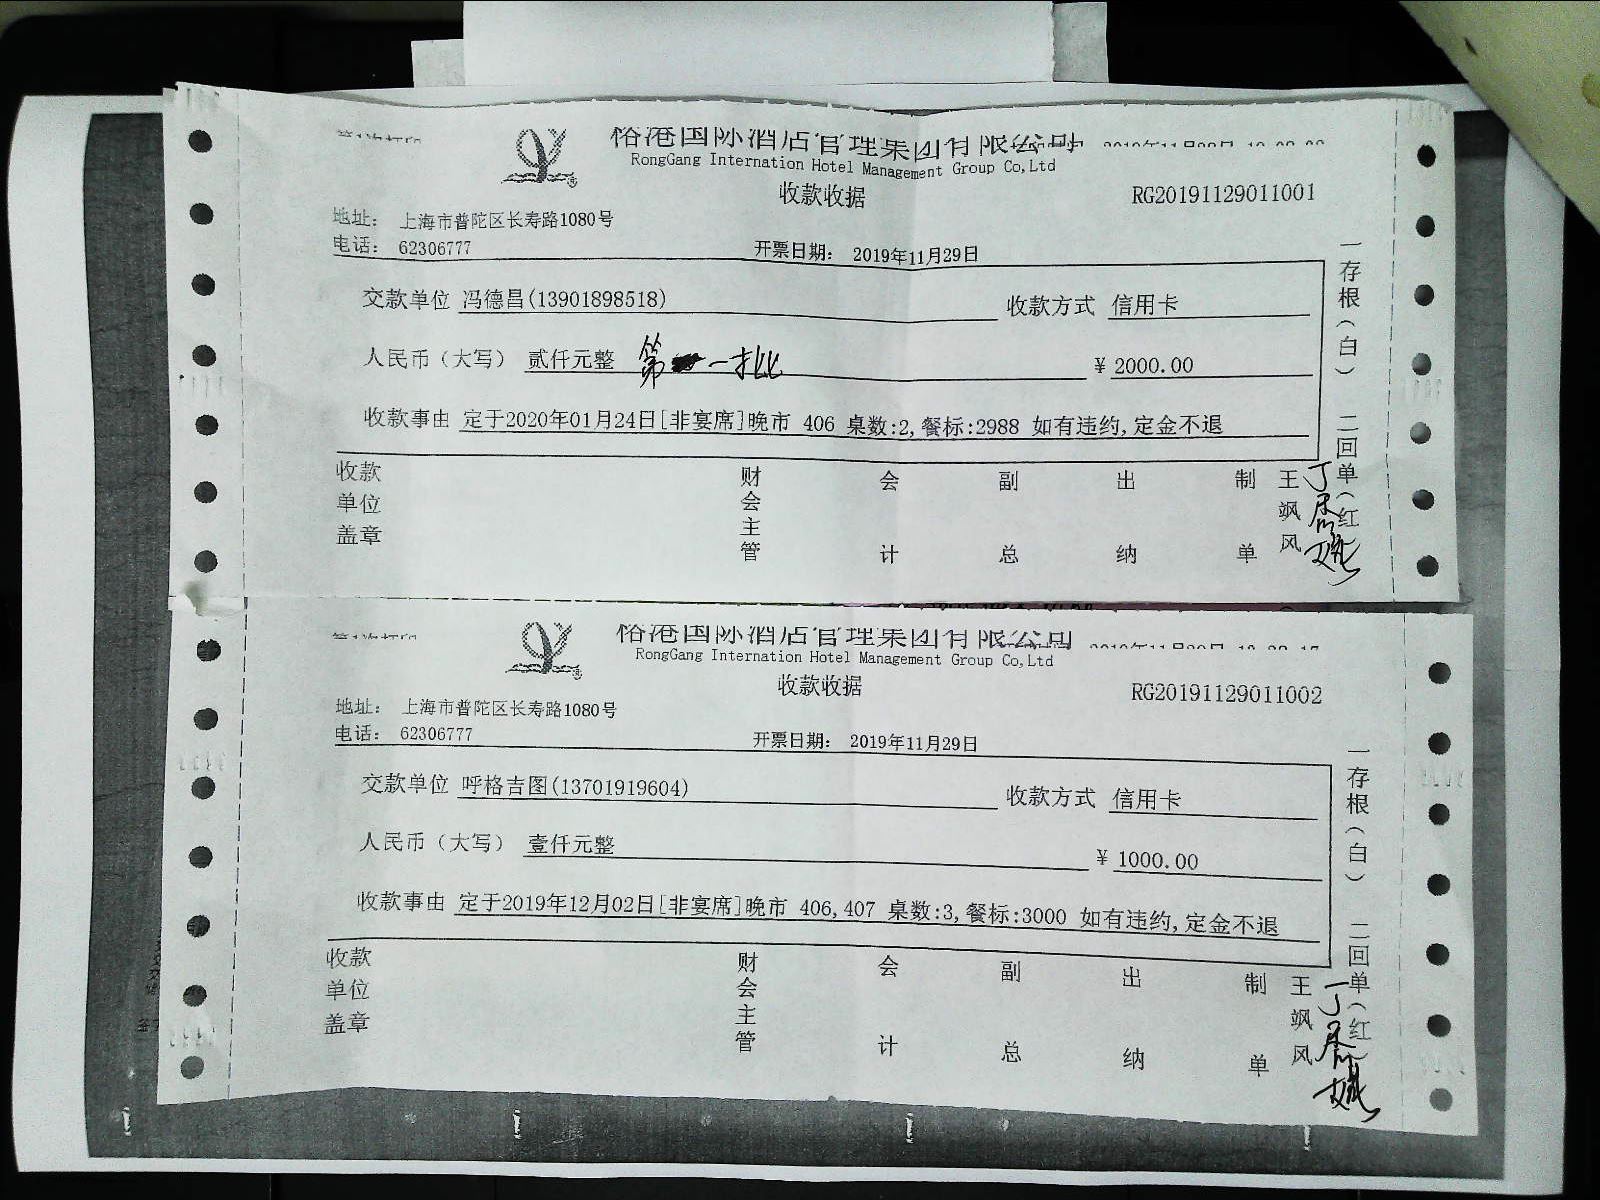 第1次打印
榕港国际酒店管理集团有限公司
RongGang Internation Hotel Management Group Co,Ltd
收款收据
RG20191129011001
地址: 上海市普陀区长寿路1080号
电话: 62306777
开票日期: 2019年11月29日
交款单位 冯德昌(13901898518) 收款方式 信用卡
人民币（大写） 贰仟元整 第一批 ¥ 2000.00
收款事由 定于2020年01月24日[非宴席]晚市 406 桌数:2,餐标:2988 如有违约,定金不退
收款单位盖章 财会主管 会计 副总 出纳 制单 王飒风
一存根(白) 二回单(红)
第1次打印
榕港国际酒店管理集团有限公司
RongGang Internation Hotel Management Group Co,Ltd
收款收据
RG20191129011002
地址: 上海市普陀区长寿路1080号
电话: 62306777
开票日期: 2019年11月29日
交款单位 呼格吉图(13701919604) 收款方式 信用卡
人民币（大写） 壹仟元整 ¥ 1000.00
收款事由 定于2019年12月02日[非宴席]晚市 406,407 桌数:3,餐标:3000 如有违约,定金不退
收款单位盖章 财会主管 会计 副总 出纳 制单 王飒风
一存根(白) 二回单(红)